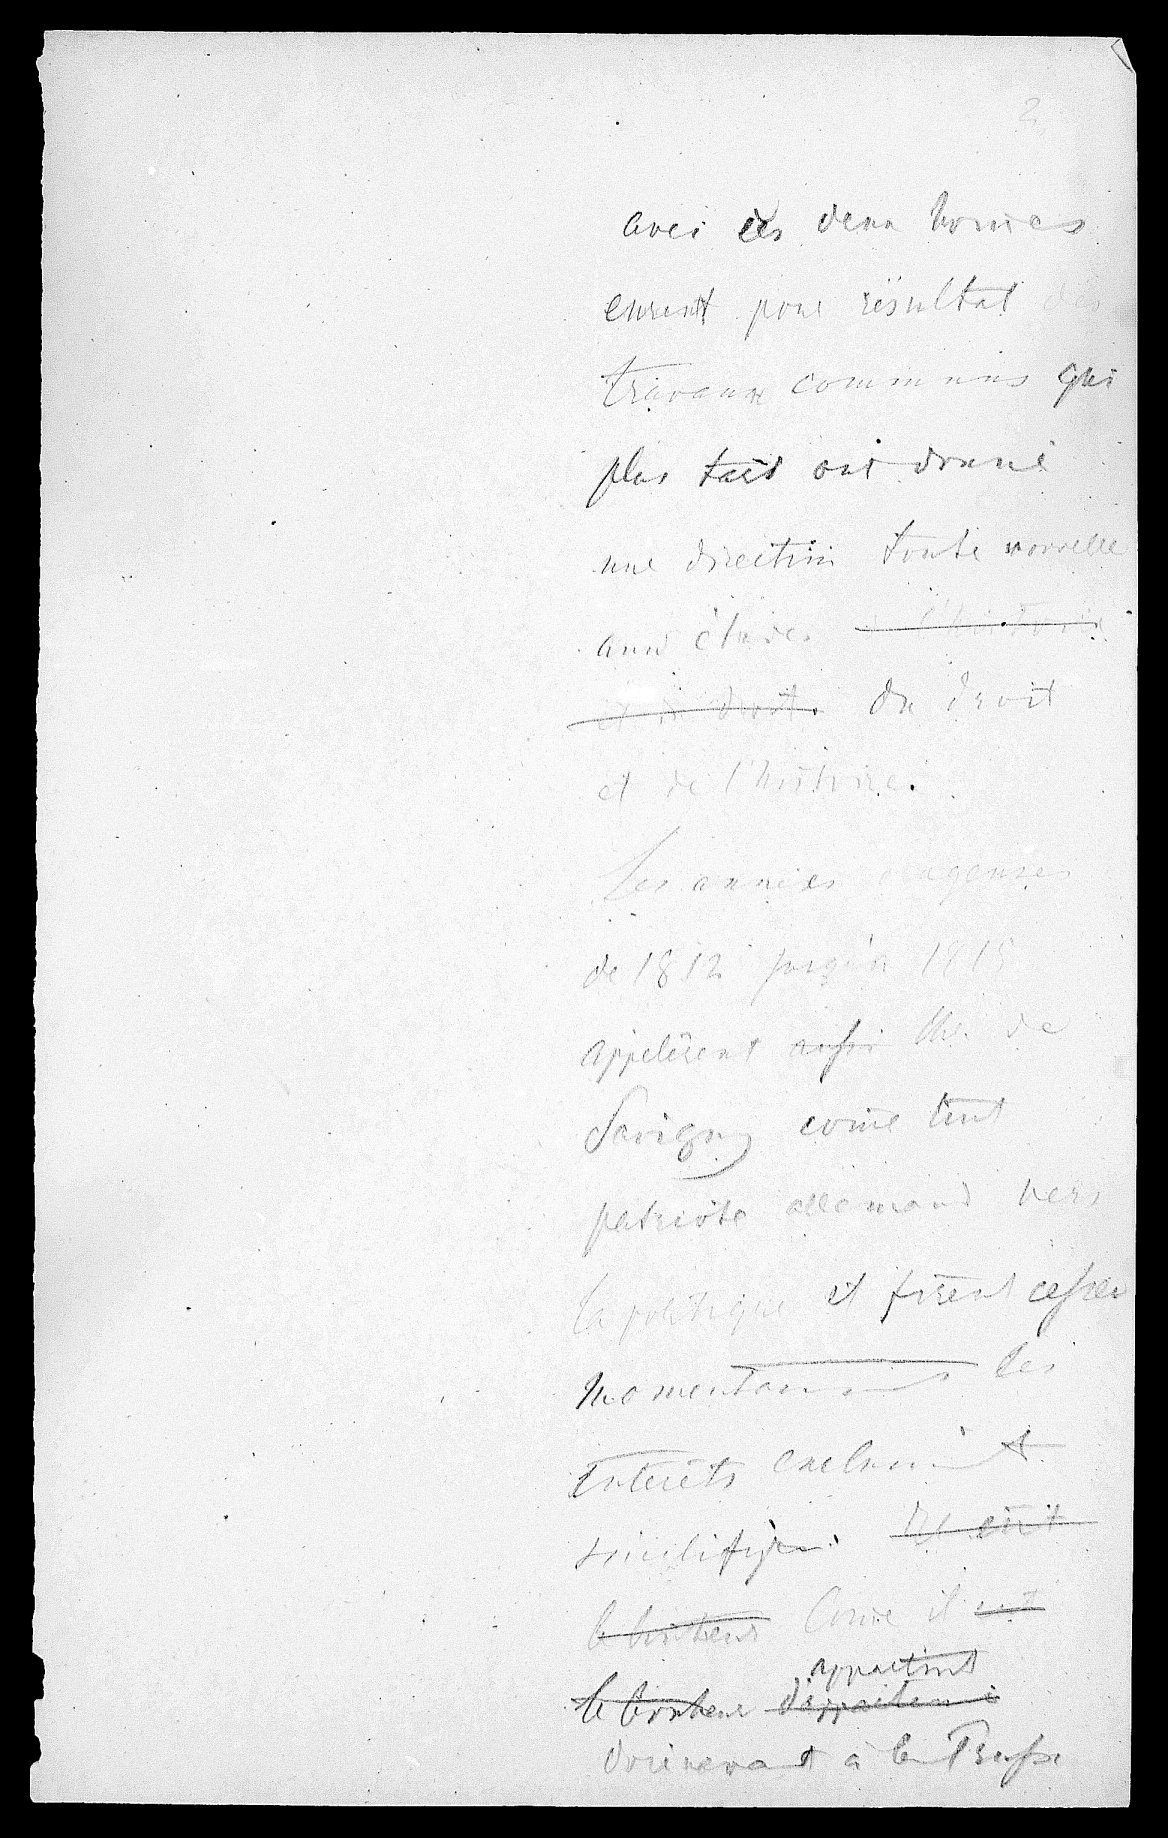 2
avec ces deux homes
eurent pour résultat des
travaux communs qui
plus tard ont donné
une direction toute nouvelle
aux études l'histoire
et du droit. du droit
et de l'histoire.
Les années orageuses
de 1812 jusqu'à 1815
appelèrent aussi Mr. de
Savigny come tout
patriote allemand vers
la politique et firent cesser
momentanément les
intérêts exclusivmt
scientifiques. Il eût
le bonheur Come il eut
appartint
le bonheur d'appartenir
dorénavant à la Prusse